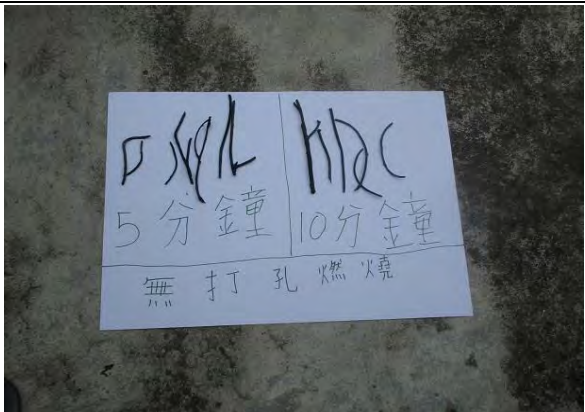 5分鐘
10分鐘
無打孔燃燒